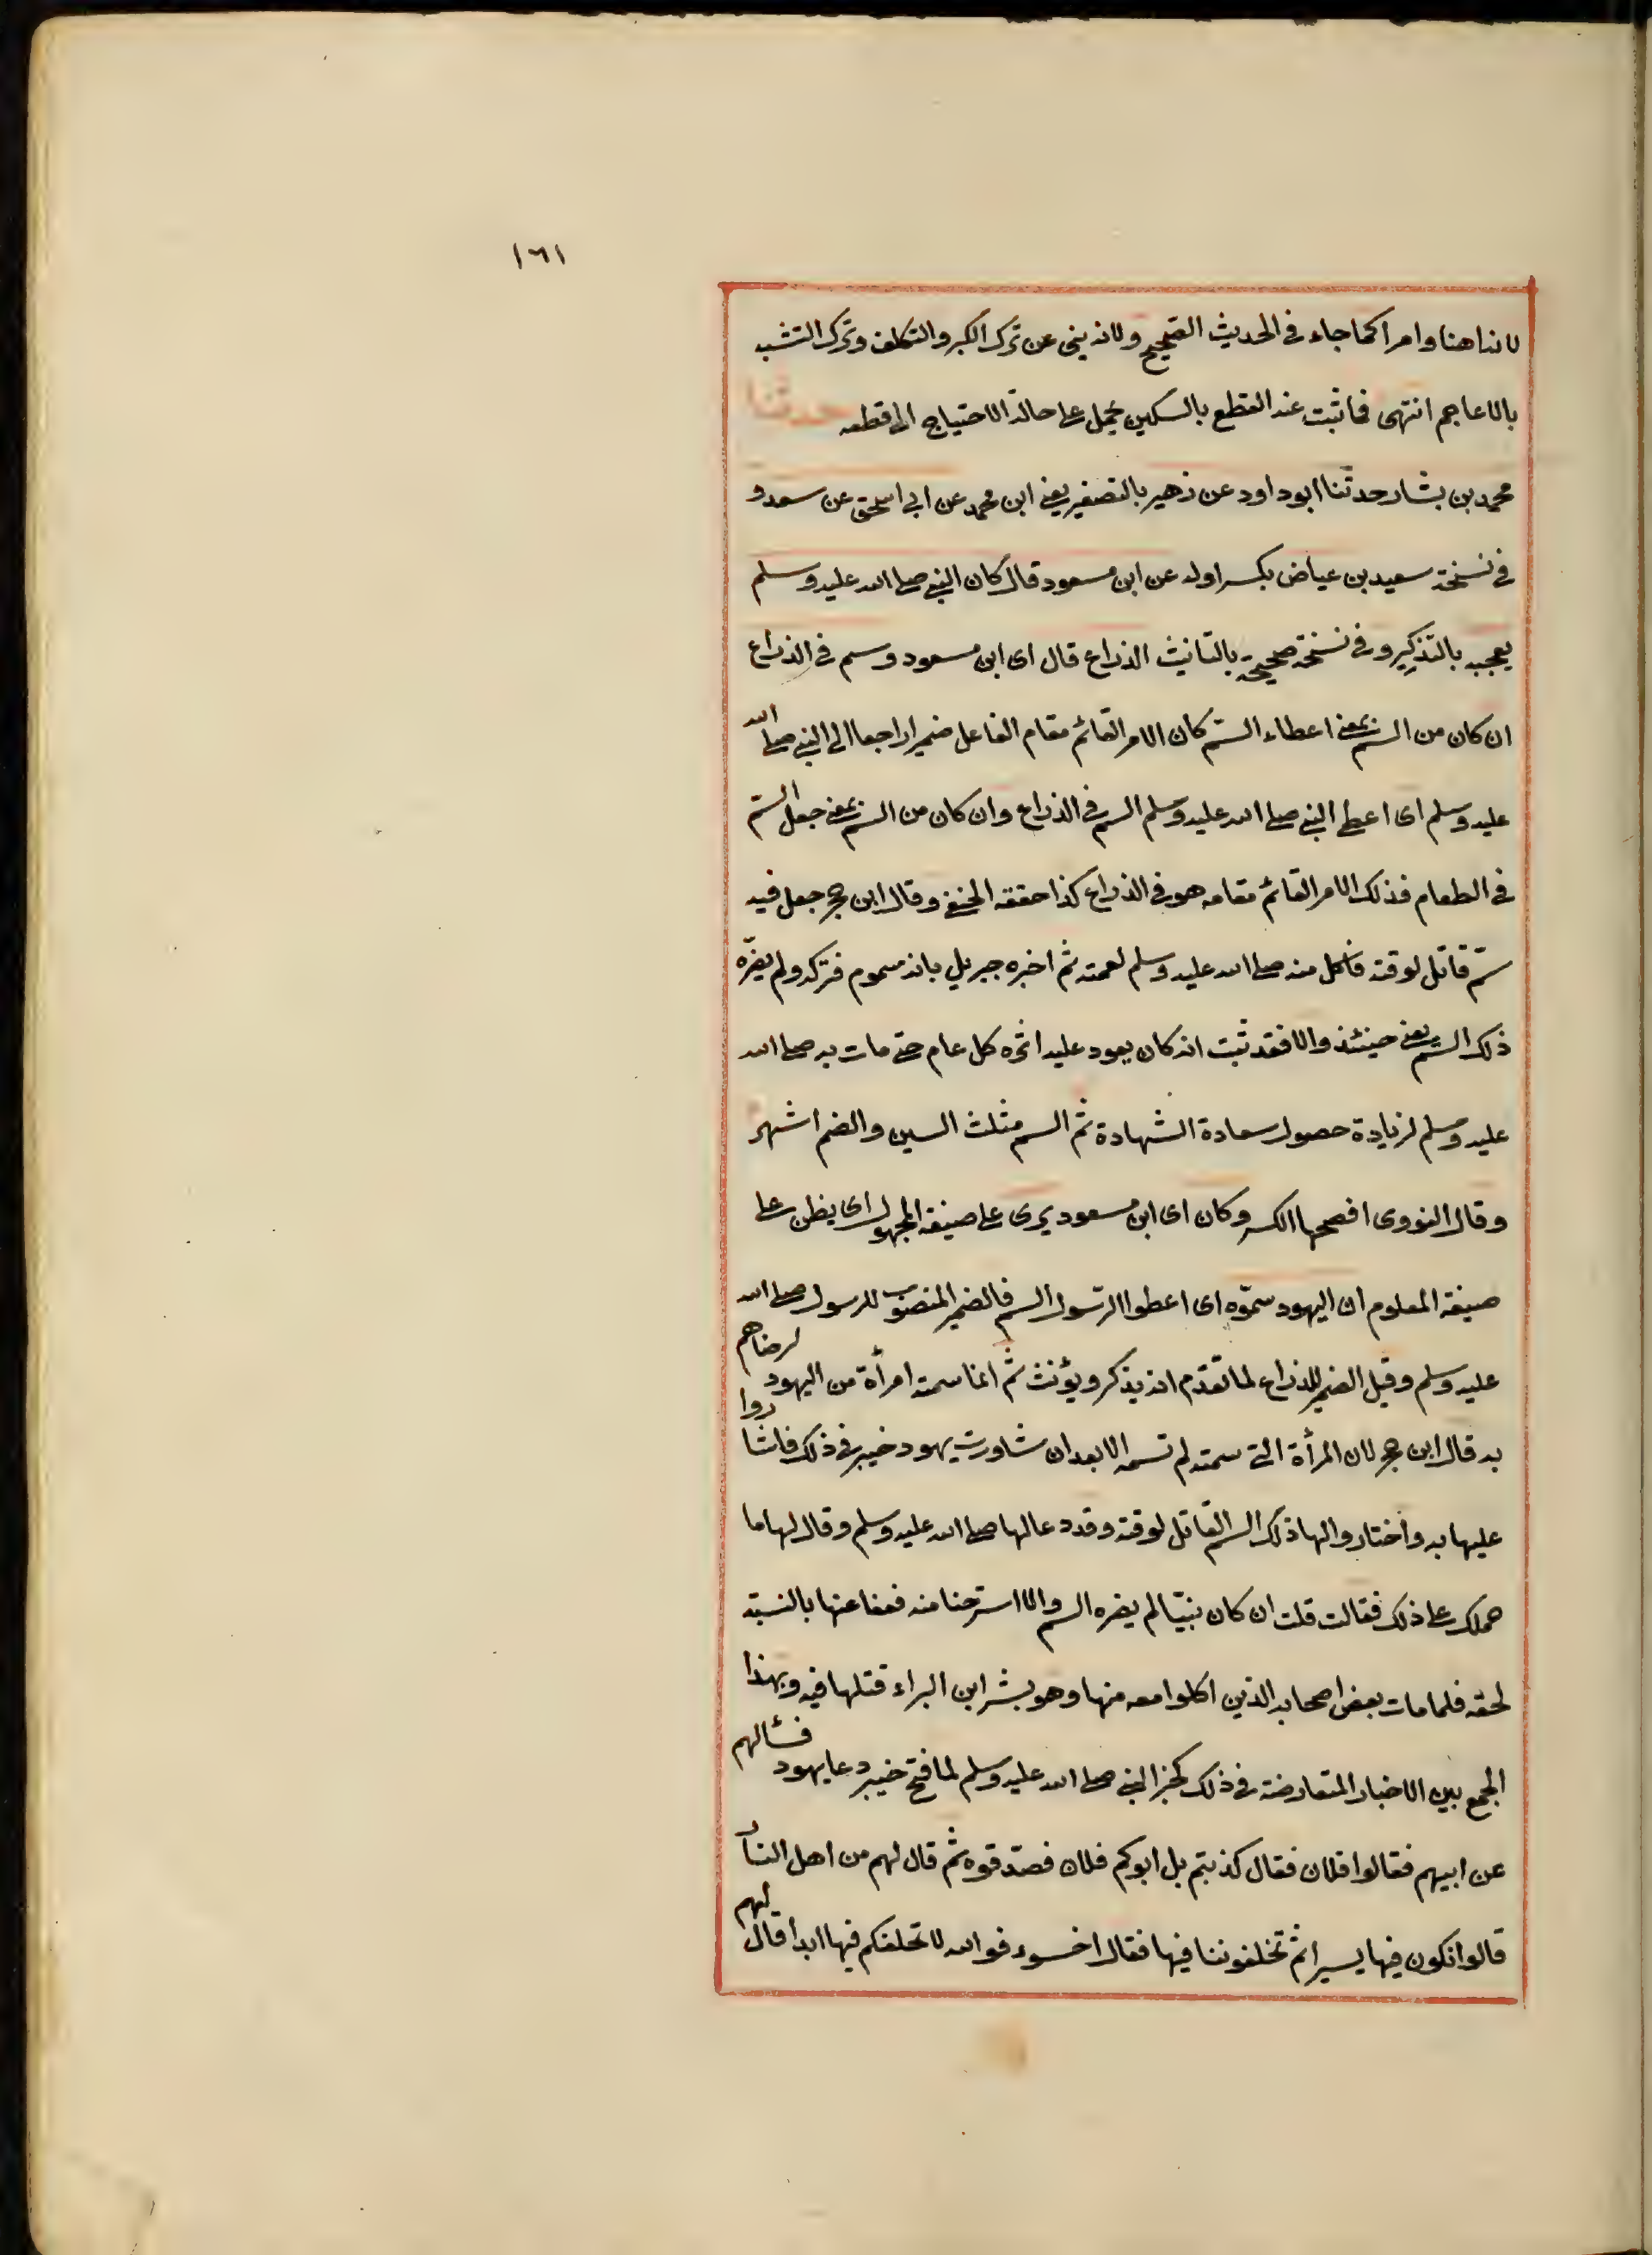 ١٦١
لانه اهنا وامرا كما جاء فى الحديث الصحيح ولانه ينى عن ترك الكبر والتكلف وترك التشبه
بالاعاجم انتهى فما ثبت عند القطع بالسكين يحمل على حالة الاحتياج الى قطعه حدثنا
محمد بن بشار حدثنا ابو داود عن زهير بالتصغير يعنى ابن محمد عن ابى اسحق عن سعد و
فى نسخة سعيد بن عياض بكسر اوله عن ابن مسعود قال كان النبى صلى الله عليه وسلم
يعجبه بالتذكير و فى نسخة صحيحة بالتانيث الذراع قال اى ابن مسعود وسم فى الذراع
ان كان من السم بمعنى اعطاء السم كان الامر القائم مقام الفاعل ضميرا راجعا الى النبى صلى الله
عليه وسلم اى اعطى النبى صلى الله عليه وسلم السم فى الذراع وان كان من السم بمعنى جعل السم
فى الطعام فذلك الامر القائم مقامه هو فى الذراع كذا حققه الحنفى وقال ابن حجر جعل فيه
سم قاتل لوقته فاكل منه صلى الله عليه وسلم لقمته ثم اخبره جبريل بانه مسموم فتركه ولم يضره
ذلك السم يعنى حينئذ والا فقد ثبت انه كان يعود عليه اثره كل عام حتى مات به صلى الله
عليه وسلم لزيادة حصول سعادة الشهادة ثم السم مثلث السين والضم اشهر
وقال النووى افصحها الكسر وكان اى ابن مسعود يرى على صيغة المجهول اى يظن على
صيغة المعلوم ان اليهود سموه اى اعطوا الرسول السم فالضمير المنصوب للرسول صلى الله
عليه وسلم وقيل الضمير للذراع لما تقدم انه يذكر ويؤنث ثم انما سمته امرأة من اليهود لرضاهم
به قال ابن حجر لان المرأة التى سمته لم تسمه الا بعد ان شاورت يهود خيبر فى ذلك فاشاروا
عليها به واختاروا لها ذلك السم القاتل لوقته وقد دعا لها صلى الله عليه وسلم وقال لها ما
حملك على ذلك فقالت قلت ان كان نبيا لم يضره السم والا استرحنا منه فعفا عنها بالنسبة
لحقه فلما مات بعض اصحابه الذين اكلوا معه منها وهو بشر ابن البراء قتلها فيه وبهذا
الجمع بين الاخبار المتعارضة فى ذلك كخبر النبى صلى الله عليه وسلم لما فتح خيبر دعا يهود فسألهم
عن ابيهم فقالوا فلان فقال كذبتم بل ابوكم فلان فصدقوه ثم قال لهم من اهل النار
قالوا نكون فيها يسيرا ثم تخلفوننا فيها فقال اخسوء فوالله لا نخلفكم فيها ابدا قال لهم